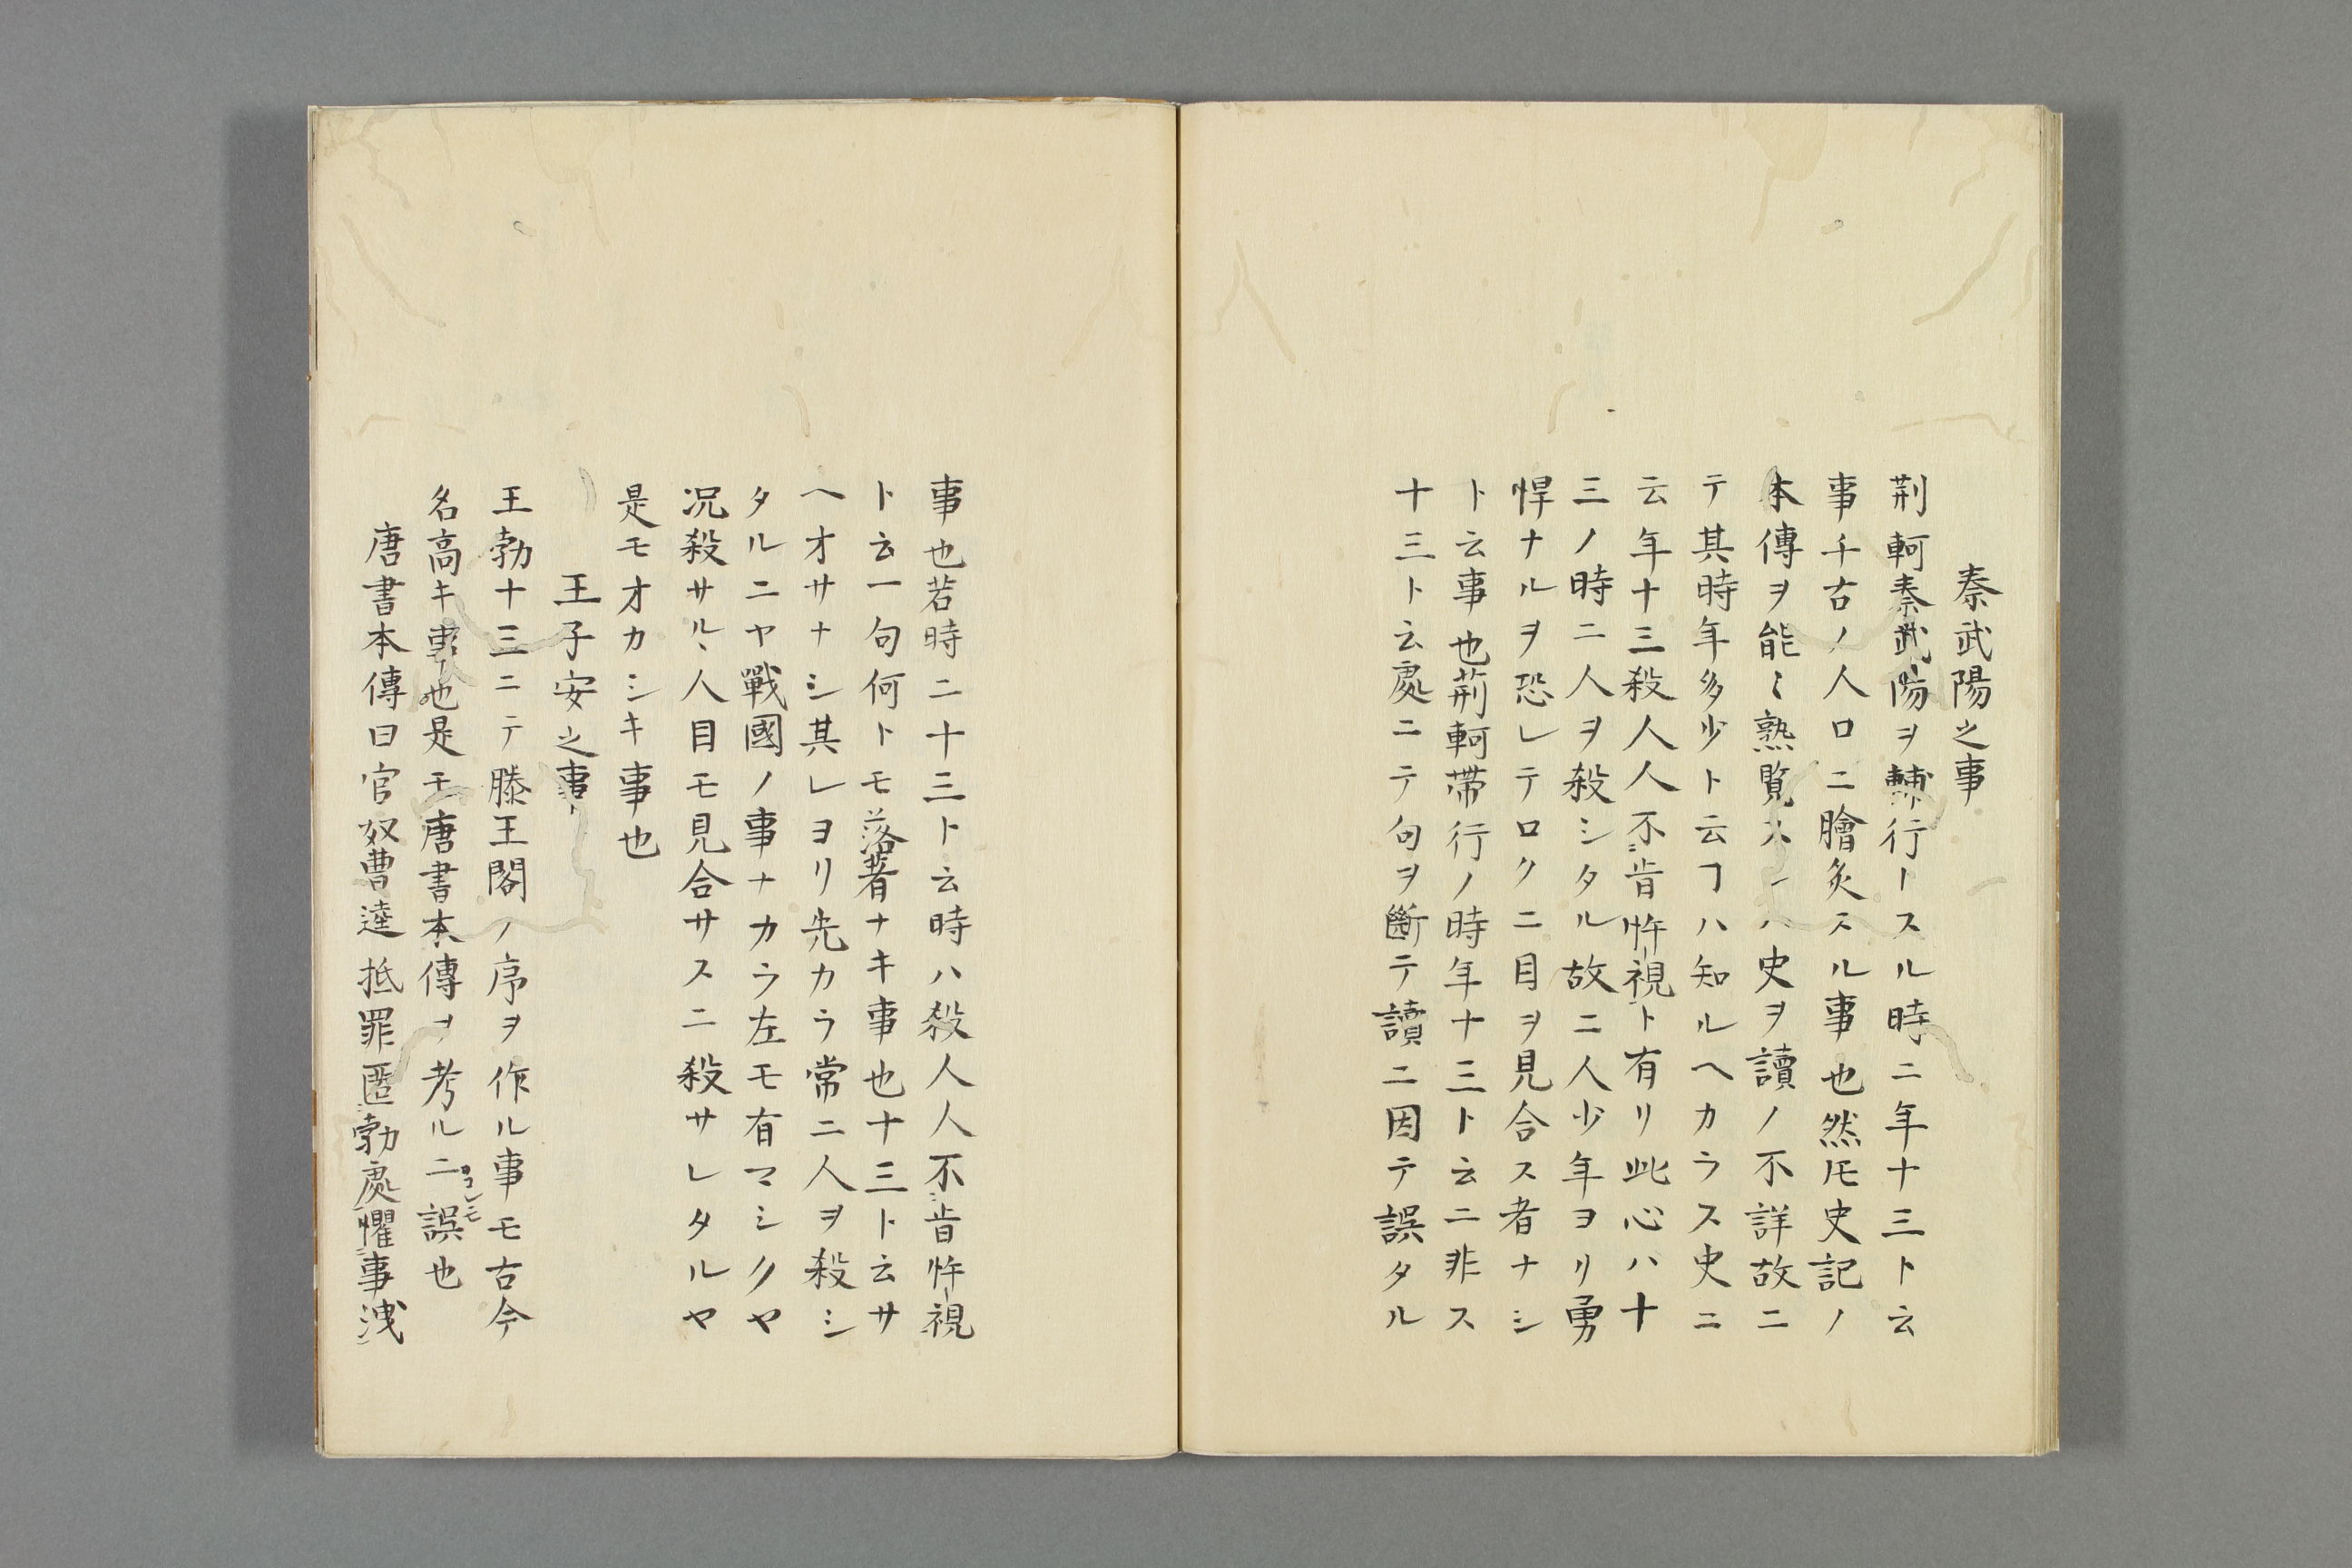 秦武陽之事
荆軻秦武陽ヲ輔行ースル時ニ年十三ト云
事千古ノ人口ニ膾炙スル事也然𪜈史記ノ
本傳ヲ能〻熟覧スーハ史ヲ讀ノ不詳故ニ
テ其時年多少ト云ヿハ知ルヘカラス史ニ
云年十三殺人人不肯忤視ト有リ此心ハ十
三ノ時ニ人ヲ殺シタル故ニ人少年ヨリ勇
悍ナルヲ恐レテロクニ目ヲ見合ス者ナシ
ト云事也荊軻帯行ノ時年十三ト云ニ非ス
十三ト云處ニテ句ヲ斷テ讀ニ因テ誤タル
事也若時ニ十三ト云時ハ殺人人不肯忤視
ト云一句何トモ落著ナキ事也十三ト云サ
ヘオサナシ其レヨリ先カラ常ニ人ヲ殺シ
タルニヤ戰國ノ事ナカラ左モ有マシクヤ
况殺サルヽ人目モ見合サスニ殺サレタルヤ
是モオカシキ事也
王子安之事
王勃十三ニテ滕王閣ノ序ヲ作ル事モ古今
名高キ事也是モ唐書本傳ヲ考ルニ誤也
コレモ
唐書本傳曰官奴曹達抵罪匿勃處懼事洩